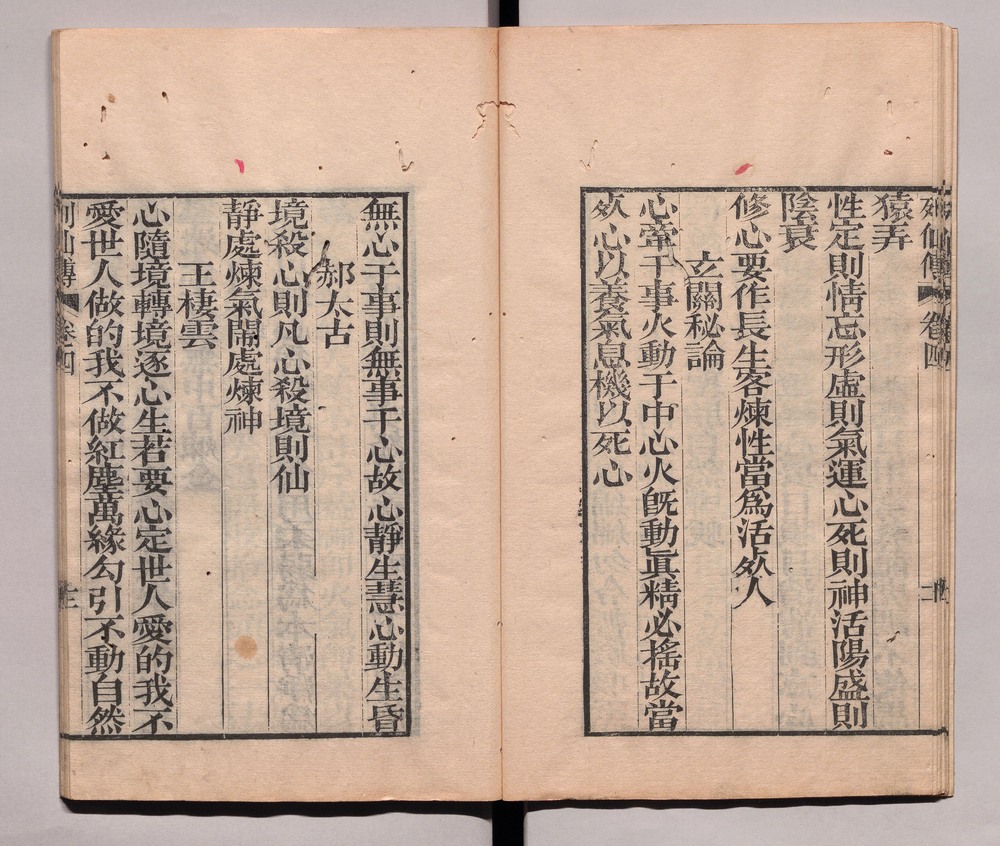 列仙傳 卷四
猿弄
性定則情忘形虛則氣運心死則神活陽盛則
陰衰
修心要作長生客煉性當爲活死人
玄關秘論
心牽于事火動于中心火旣動眞精必搖故當
死心以養氣息機以死心
無心于事則無事于心故心靜生慧心動生昏
郝太古
境殺心則凡心殺境則仙
靜處煉氣鬧處煉神
王棲雲
心隨境轉境逐心生若要心定世人愛的我不
愛世人做的我不做紅塵萬緣勾引不動自然
列仙傳 卷四